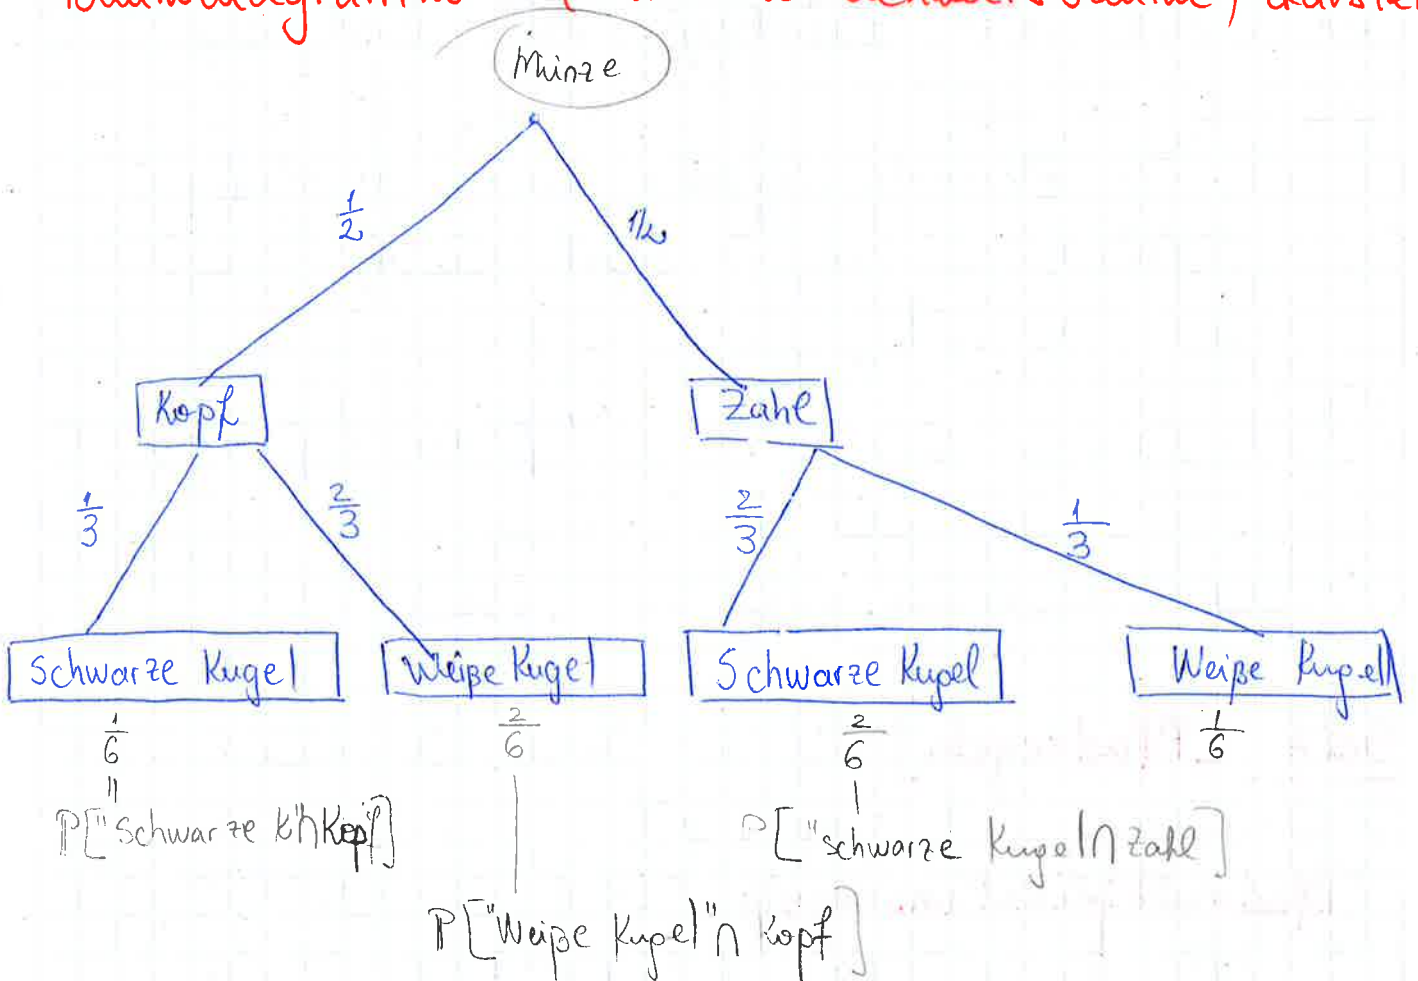 Münze
1/2 1/2
Kopf Zahl
1/3 2/3 2/3 1/3
Schwarze Kugel Weiße Kugel Schwarze Kugel Weiße Kugel
1/6 2/6 2/6 1/6
P["Schwarze K"∩Kopf] P["schwarze Kugel∩Zahl]
P["Weiße Kugel"∩Kopf]